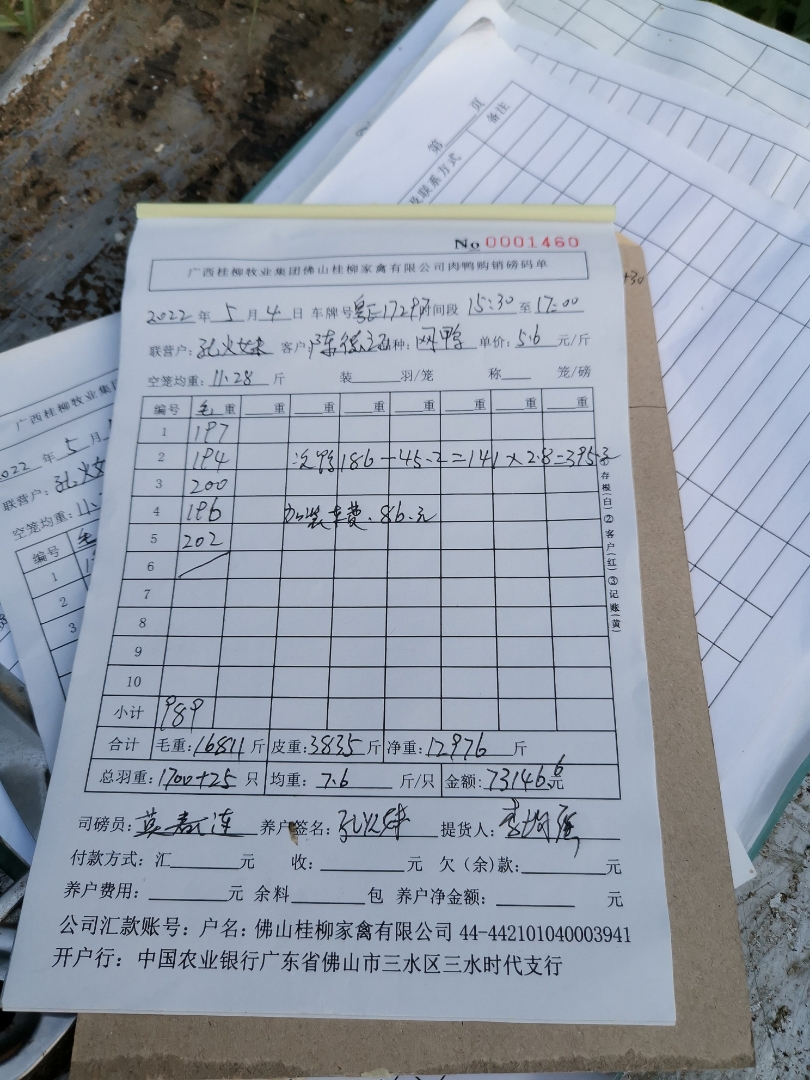 第____页
备注
及联系方式
No 0001460
广西桂柳牧业集团佛山桂柳家禽有限公司肉鸭购销磅码单
2022年 5月 4日 车牌号 时间段 15:30 至 17:00
联营户: 客户: 种: 网鸭 单价: 5.6 元/斤
空笼均重: 11.28 斤 装____羽/笼 称____笼/磅
编号 毛重 ____重 ____重 ____重 ____重 ____重 ____重 ____重
1 197
2 194 次鸭 186-45.2=141×2.8=395
3 200
4 196 加装车费.86.元
5 202
6
7
8
9
10
小计 989
存根(白)②客户(红)③记账(黄)
合计 毛重:16811斤 皮重:3835斤 净重:12976斤
总羽重:1700+25只 均重: 7.6 斤/只 金额:73146.6元
司磅员: 养户签名: 提货人:
付款方式: 汇____元 收:____元 欠(余)款:____元
养户费用:____元 余料____包 养户净金额:____元
公司汇款账号: 户名: 佛山桂柳家禽有限公司 44-442101040003941
开户行: 中国农业银行广东省佛山市三水区三水时代支行
广西桂柳牧业集团
2022年 5月
联营户:
空笼均重: 11.
编号
1
2
3